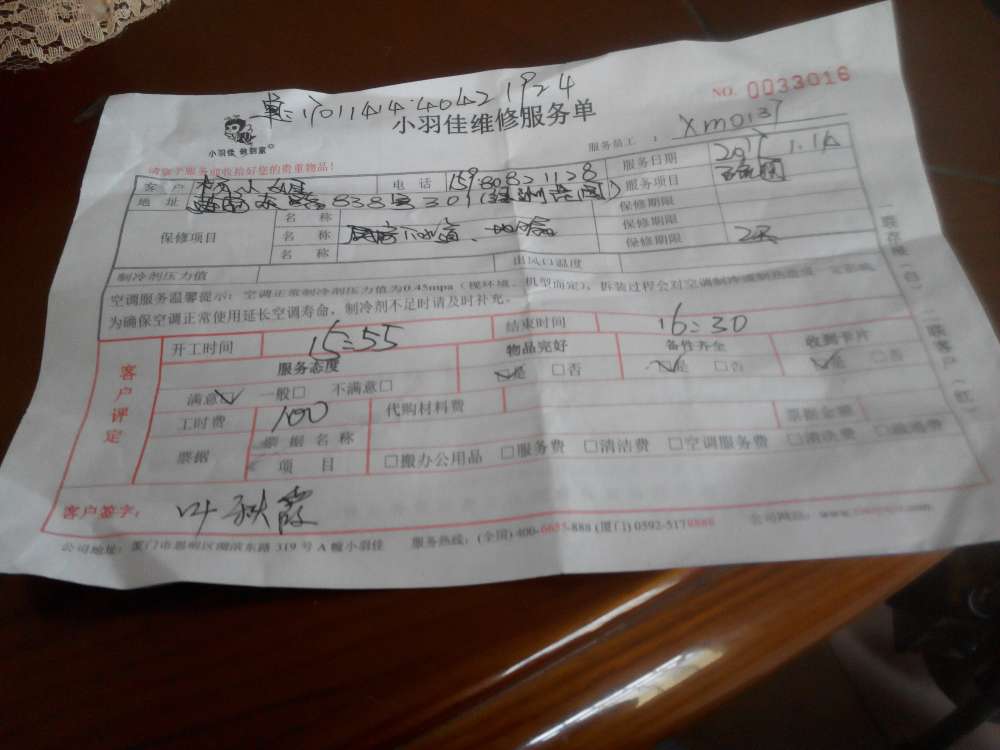 NO. 0033016
单:1701141440421924
小羽佳维修服务单
小羽佳 做到家
服务员工: XM0137
请您于服务前收拾好您的贵重物品!
客户 电话 15980821128 服务日期 2017.1.14
地址 838号301 服务项目
保修项目 名称 保修期限
名称 厨房下水道、地漏 保修期限
名称 保修期限 2天
制冷剂压力值 出风口温度
空调服务温馨提示:空调正常制冷剂压力值为0.45mpa(视环境、机型而定),拆装过程会对空调制冷
为确保空调正常使用延长空调寿命,制冷剂不足时请及时补充。
客户评定
开工时间 15:55 结束时间 16:30
服务态度 物品完好 备性齐全 收到卡片
满意☑ 一般□ 不满意□ ☑是 □否 ☑是 □否 ☑是 □否
工时费 100 代购材料费 票据金额
票据 票据名称
项目 □搬办公用品 □服务费 □清洁费 □空调服务费 □清洗费
客户签字: 叶秋霞
公司地址:厦门市思明区湖滨东路319号A幢小羽佳 服务热线:(全国)400-6655-888(厦门)0592-5179888 公司网址: